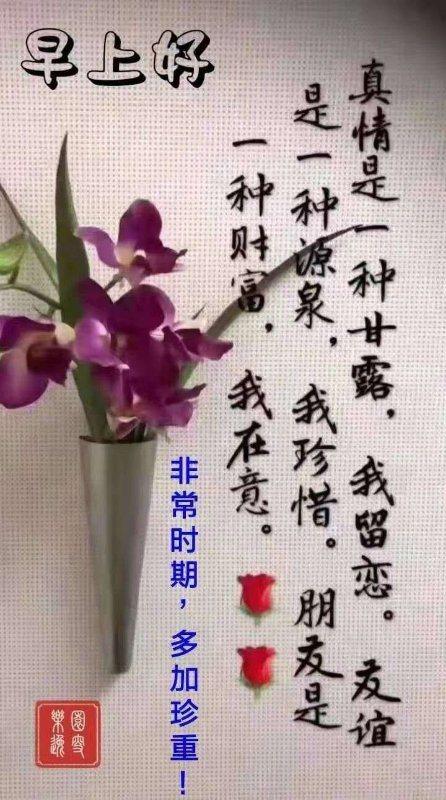 早上好
真情是一种甘露，我留恋。友谊
是一种源泉，我珍惜。朋友是
一种财富，我在意。
非常时期，多加珍重！